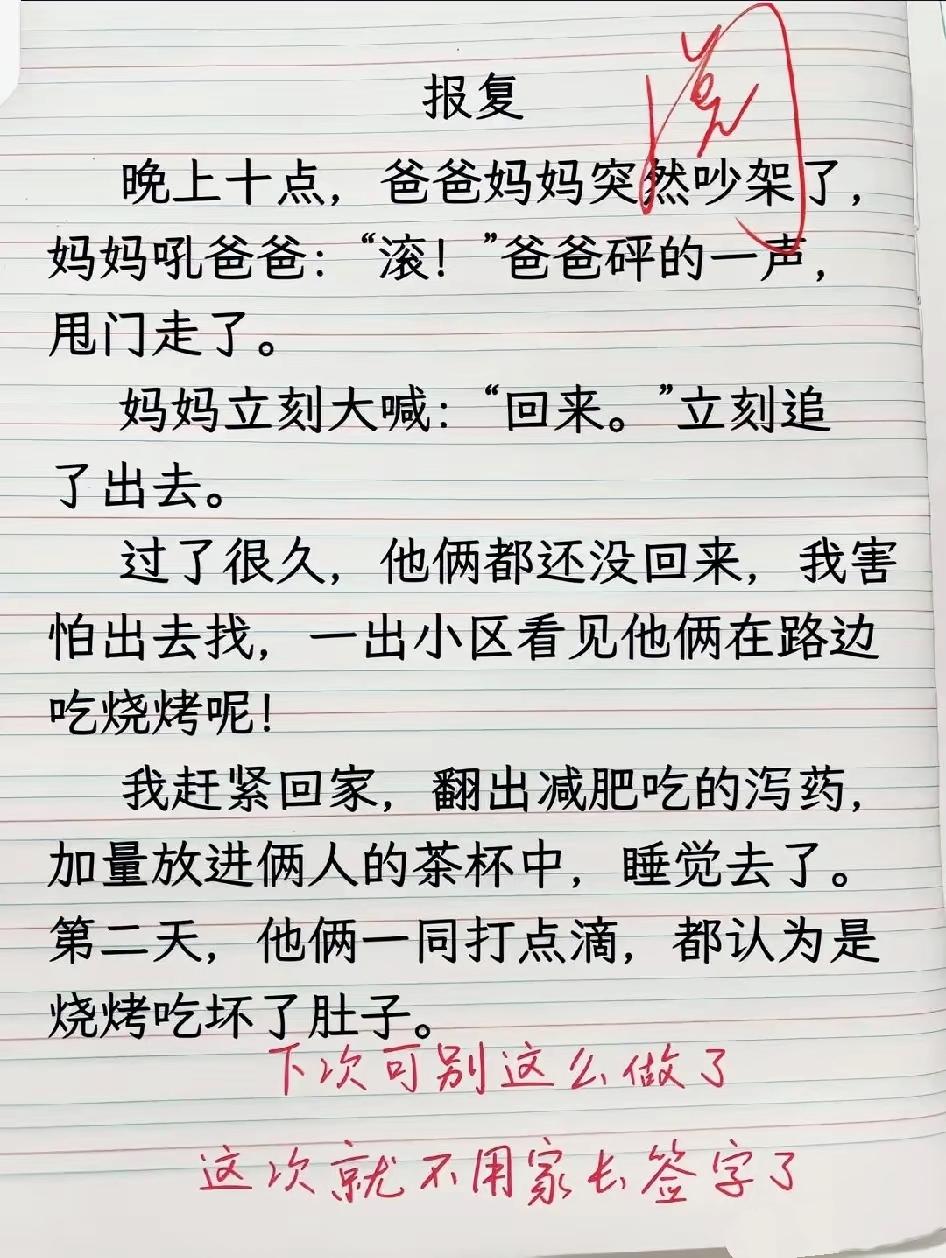 报复
晚上十点，爸爸妈妈突然吵架了，
妈妈吼爸爸：“滚！”爸爸砰的一声，
甩门走了。
妈妈立刻大喊：“回来。”立刻追
了出去。
过了很久，他俩都还没回来，我害
怕出去找，一出小区看见他俩在路边
吃烧烤呢！
我赶紧回家，翻出减肥吃的泻药，
加量放进俩人的茶杯中，睡觉去了。
第二天，他俩一同打点滴，都认为是
烧烤吃坏了肚子。
下次可别这么做了
这次就不用家长签字了